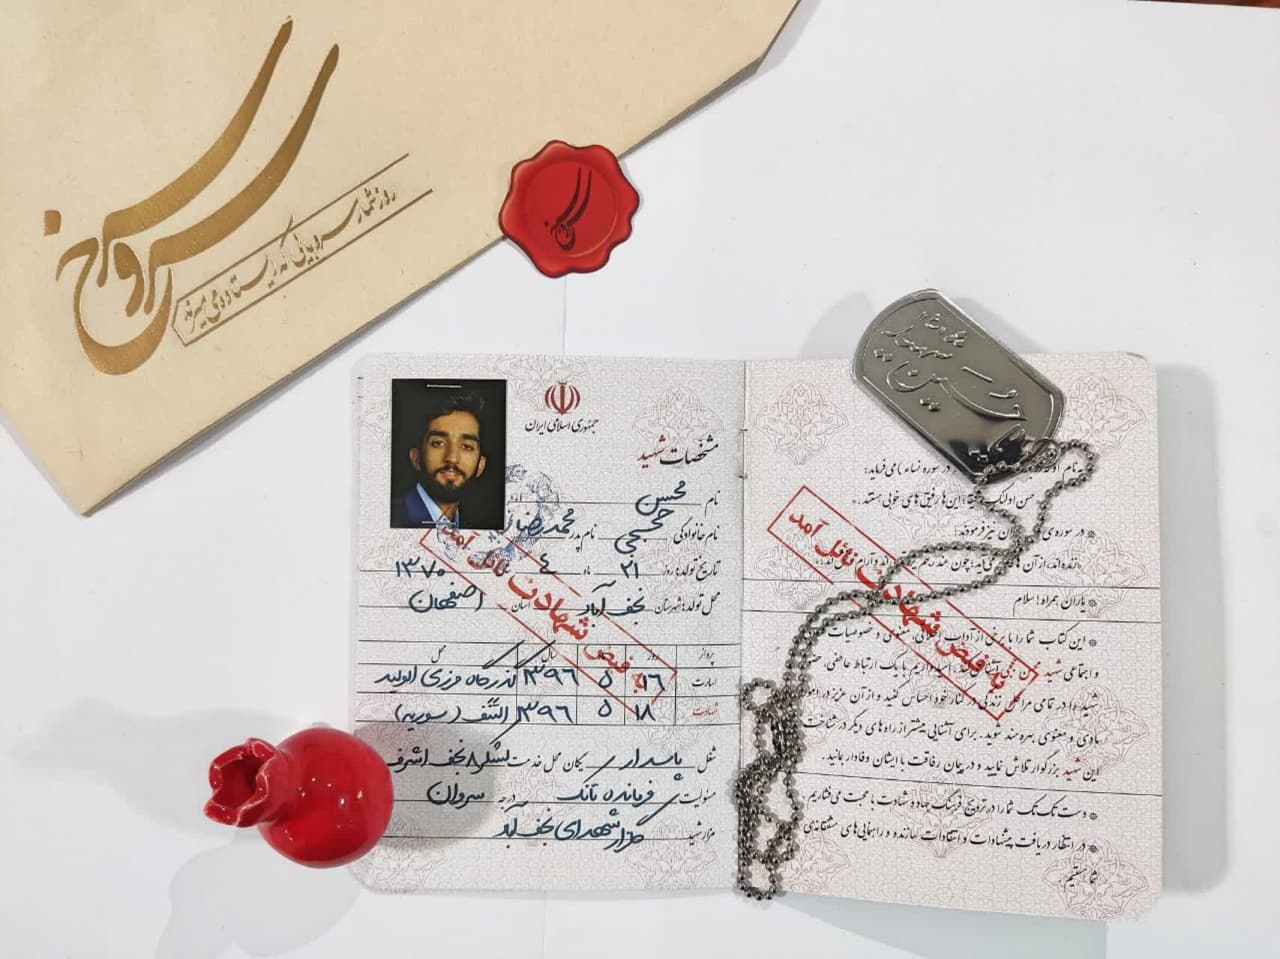 سرو سرخ
روزشمار سروهایی که ایستاده می‌میرند
سرو سرخ
جمهوری اسلامی ایران
مشخصات شهید
نام محسن
نام خانوادگی حججی نام پدر محمدرضا
تاریخ تولد: روز ۲۱ ماه ٤ سال ۱۳۷۰
محل تولد: شهرستان نجف آباد استان اصفهان
پرواز روز سال محل
اسارت ۱۶ ۵ ۱۳۹۶ گذرگاه مرزی الولید
شهادت ۱۸ ۵ ۱۳۹۶ التنف (سوریه)
شغل پاسدار یگان محل خدمت لشکر ۸ نجف اشرف
مسئولیت فرمانده تانک درجه سروان
مزار شهید گلزار شهدای نجف آباد
به فیض شهادت نائل آمد
شهید
حسین
در سوره نساء) می‌فرماید:
حسن اولئک این‌ها رفیق‌های خوبی هستند.
* در سوره‌ی نیز فرمودند:
به فیض شهادت نائل آمد
* یاران همراه! سلام
* این کتاب شما را با برخی از آداب معنوی و خصوصیات
و اجتماعی شهید آشنا امیدواریم با یک ارتباط عاطفی، حضور
شهید را در تمامی مراحل زندگی در کنار خود احساس کنید و از آن عزیز در امور
مادی و معنوی بهره مند شوید. برای آشنایی بیشتر از راه های دیگر در شناخت
این شهید بزرگوار تلاش نمایید و در پیمان رفاقت با ایشان وفادار بمانید.
* دست تک تک شما را در ترویج فرهنگ جهاد و شهادت با محبت می‌فشاریم
* در انتظار دریافت پیشنهادات و انتقادات سازنده و راهنمایی‌های مشفقانه‌ی
شما هستیم.